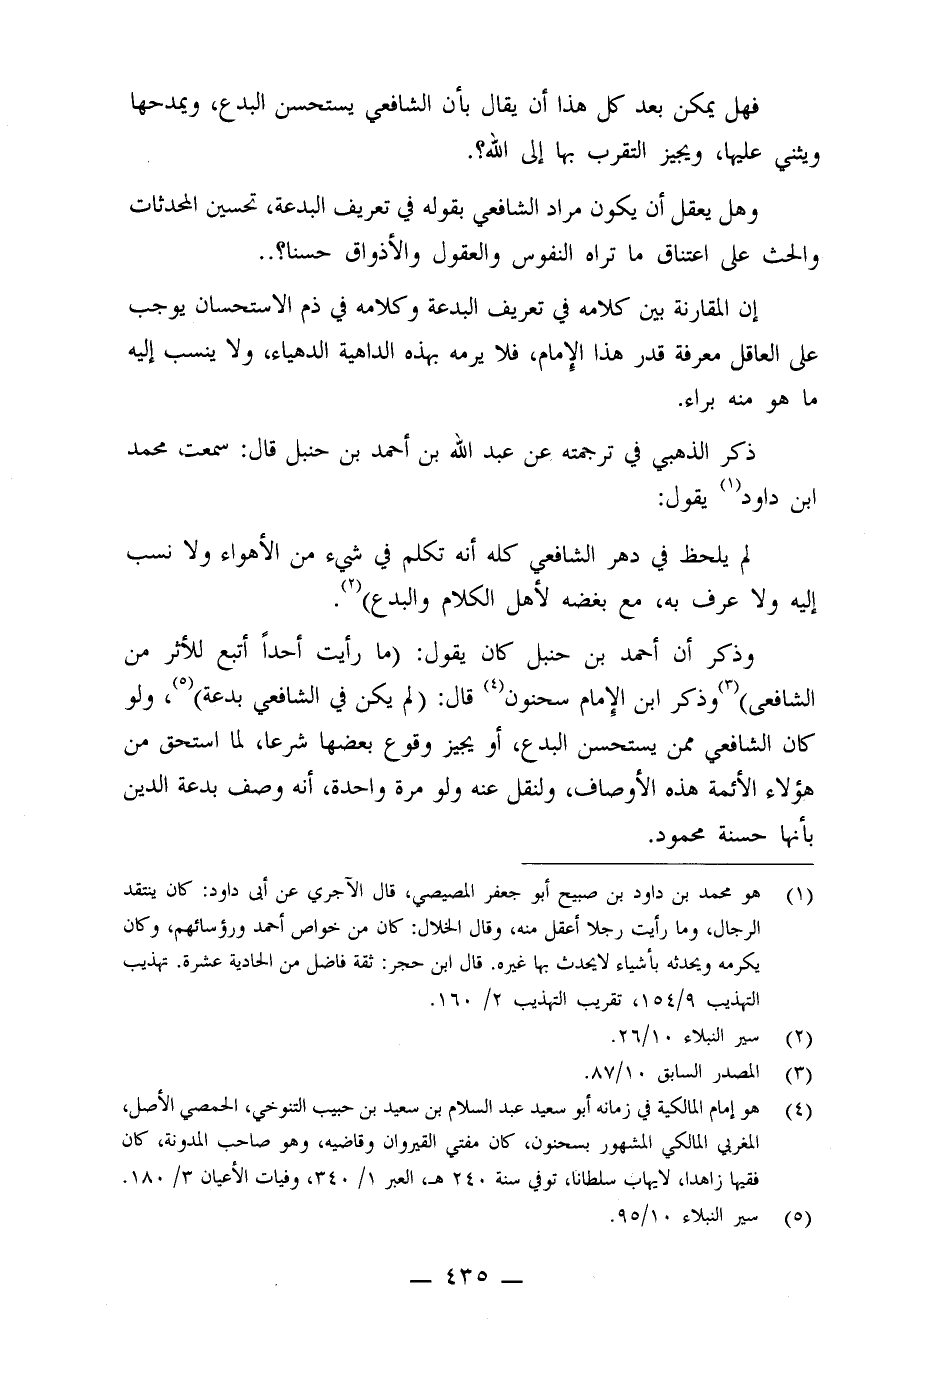 فهل يمكن بعد كل هذا أن يقال بأن الشافعي يستحسن البدع، ويمدحها
ويثني عليها، ويجيز التقرب بها إلى الله؟.
وهل يعقل أن يكون مراد الشافعي بقوله في تعريف البدعة، تحسين المحدثات
والحث على اعتناق ما تراه النفوس والعقول والأذواق حسنا؟..
إن المقارنة بين كلامه في تعريف البدعة وكلامه في ذم الاستحسان يوجب
على العاقل معرفة قدر هذا الإمام، فلا يرمه بهذه الداهية الدهياء، ولا ينسب إليه
ما هو منه براء.
ذكر الذهبي في ترجمته عن عبد الله بن أحمد بن حنبل قال: سمعت محمد
ابن داود(١) يقول:
لم يلحظ في دهر الشافعي كله أنه تكلم في شيء من الأهواء ولا نسب
إليه ولا عرف به، مع بغضه لأهل الكلام والبدع)(٢).
وذكر أن أحمد بن حنبل كان يقول: (ما رأيت أحداً أتبع للأثر من
الشافعى)(٣)وذكر ابن الإمام سحنون(٤) قال: (لم يكن في الشافعي بدعة)(٥)، ولو
كان الشافعي ممن يستحسن البدع، أو يجيز وقوع بعضها شرعا، لما استحق من
هؤلاء الأئمة هذه الأوصاف، ولنقل عنه ولو مرة واحدة، أنه وصف بدعة الدين
بأنها حسنة محمود.
(١) هو محمد بن داود بن صبيح أبو جعفر المصيصي، قال الآجري عن أبى داود: كان ينتقد
الرجال، وما رأيت رجلا أعقل منه، وقال الخلال: كان من خواص أحمد ورؤسائهم، وكان
يكرمه ويحدثه بأشياء لايحدث بها غيره. قال ابن حجر: ثقة فاضل من الحادية عشرة. تهذيب
التهذيب ١٥٤/٩، تقريب التهذيب ٢/ ١٦٠.
(٢) سير النبلاء ٢٦/١٠.
(٣) المصدر السابق ٨٧/١٠.
(٤) هو إمام المالكية في زمانه أبو سعيد عبد السلام بن سعيد بن حبيب التنوخي، الحمصي الأصل،
المغربي المالكي المشهور بسحنون، كان مفتي القيروان وقاضيه، وهو صاحب المدونة، كان
فقيها زاهدا، لايهاب سلطانا، توفي سنة ٢٤٠ هـ، العبر ١/ ٣٤٠، وفيات الأعيان ٣/ ١٨٠.
(٥) سير النبلاء ٩٥/١٠.
— ٤٣٥ —